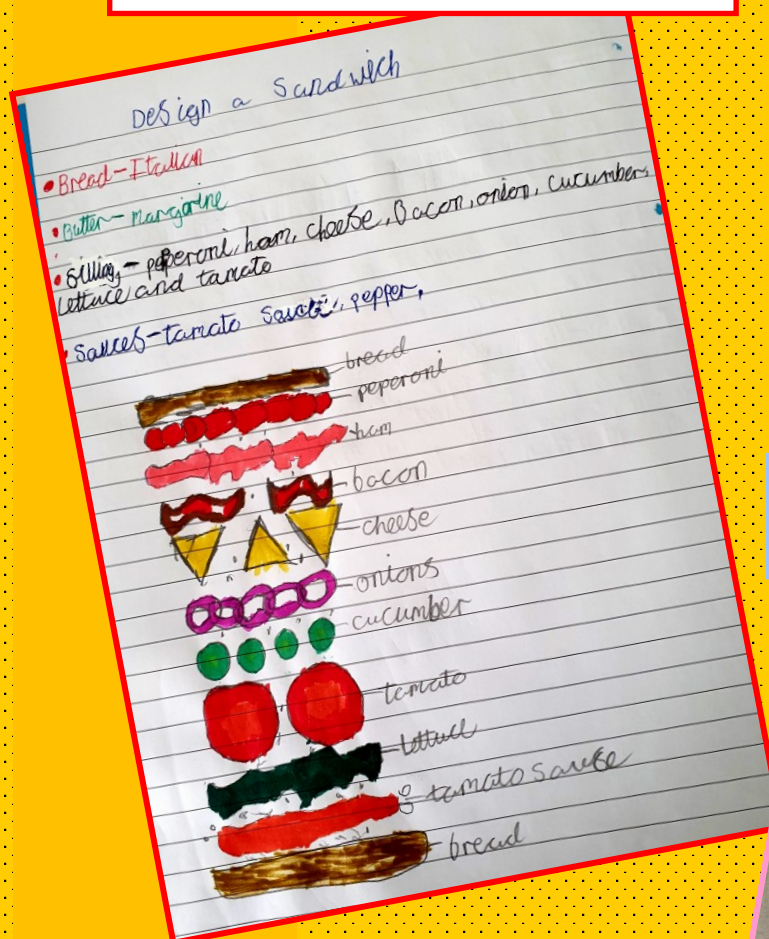 Design a Sandwich
• Bread - Italian
• Butter - Margarine
• filling - peperoni, ham, cheese, Bacon, onion, cucumber,
lettuce and tamato
• Sauces - tamato sauce, pepper,
bread
peperoni
ham
bacon
cheese
onions
cucumber
tomato
lettuce
tamato sauce
bread